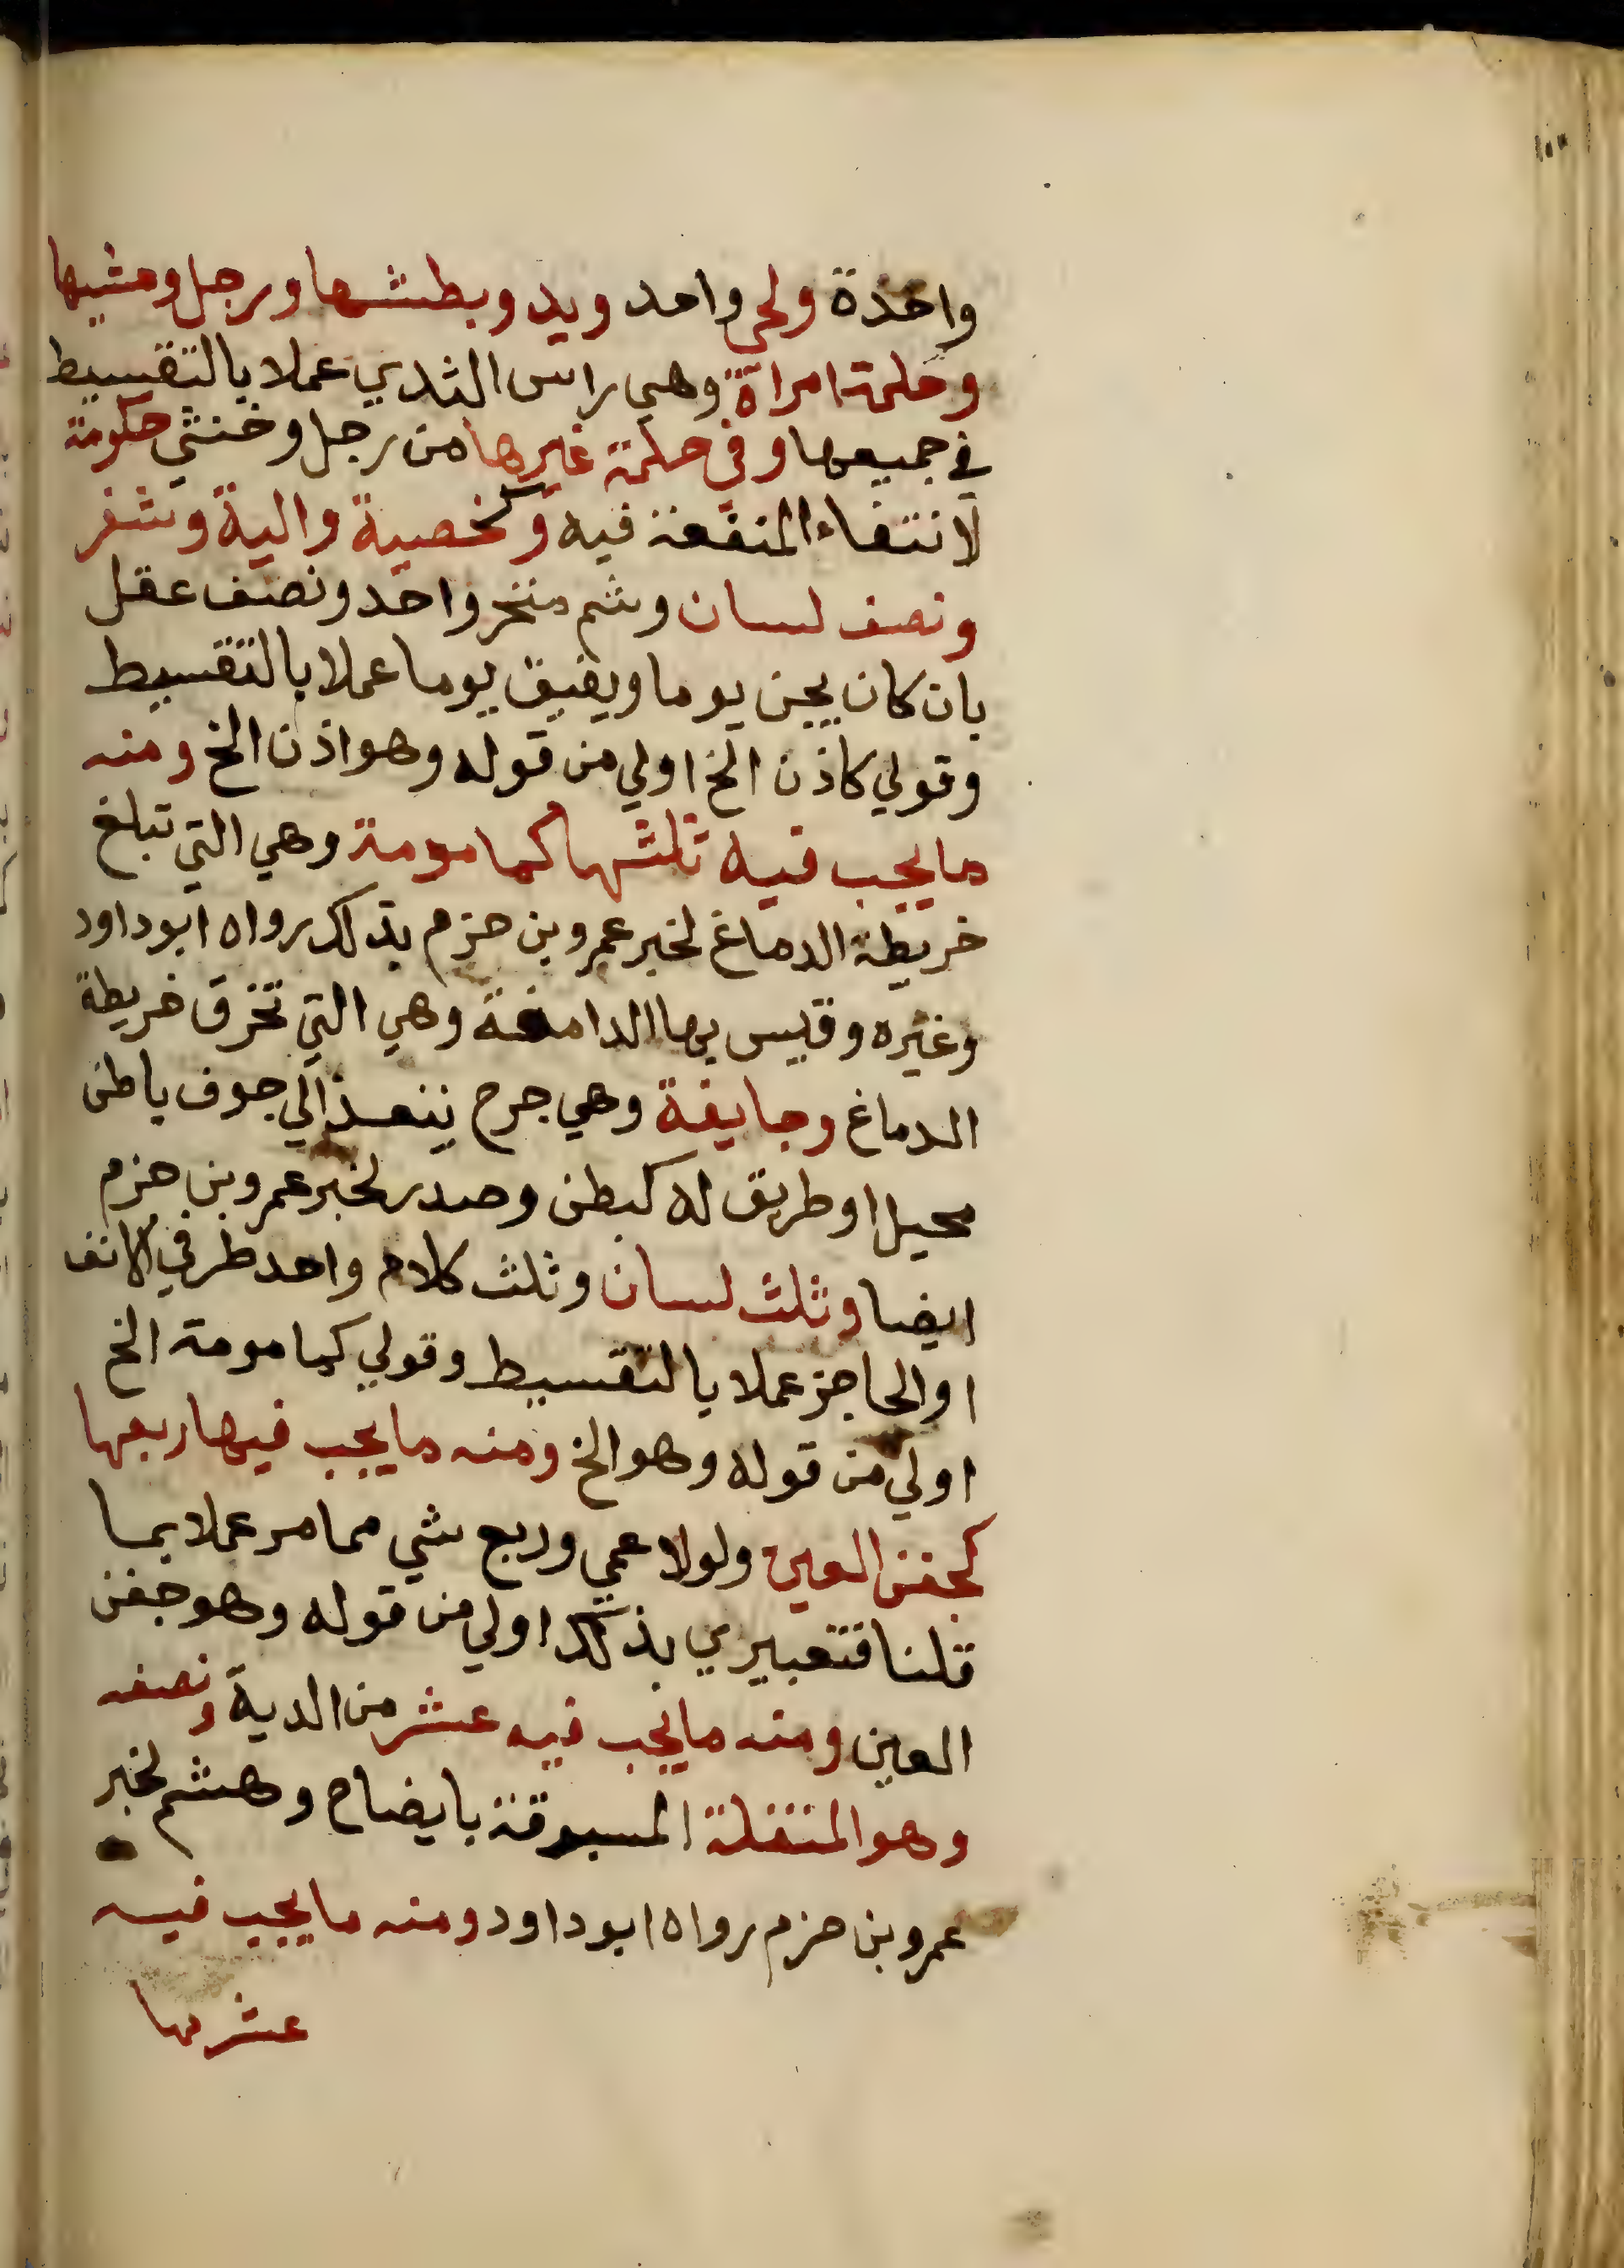 واحدة ولحي واحد ويد وبطشها ورجل ومشيها
وحلمة امراة وهي راس الثدي عملا بالتقسيط
في جميعها وفي حلمة غيرها من رجل وخنثي حكومة
لانتفاء المنفعة فيه وكخصية والية وشفر
ونصف لسان وشم منخر واحد ونصف عقل
بان كان يجن يوما ويفيق يوما عملا بالتقسيط
وقولي كاذن الخ اولي من قوله وهو اذن الخ ومنه
ما يجب فيه ثلثها كمامومة وهي التي تبلغ
خريطة الدماغ لخبر عمرو بن حزم بذلك رواه ابو داود
وغيره وقيس بها الدامغة وهي التي تخرق خريطة
الدماغ وجايفة وهي جرح ينفذ الي جوف باطن
محيل او طريق له كبطن وصدر لخبر عمرو بن حزم
ايضا وثلث لسان وثلث كلام واحد طرفي الانف
او الحاجز عملا بالتقسيط وقولي كمامومة الخ
اولي من قوله وهو الخ ومنه ما يجب فيها ربعها
كجفن العين ولولا عمي وربع شي مما مر عملا بما
قلنا فتعبيري بذلك اولي من قوله وهو جفن
العين ومنه ما يجب فيه عشر من الدية ونصفه
وهو المنقلة المسبوقة بايضاح وهشم لخبر
عمرو بن حزم رواه ابو داود ومنه ما يجب فيه
عشرها